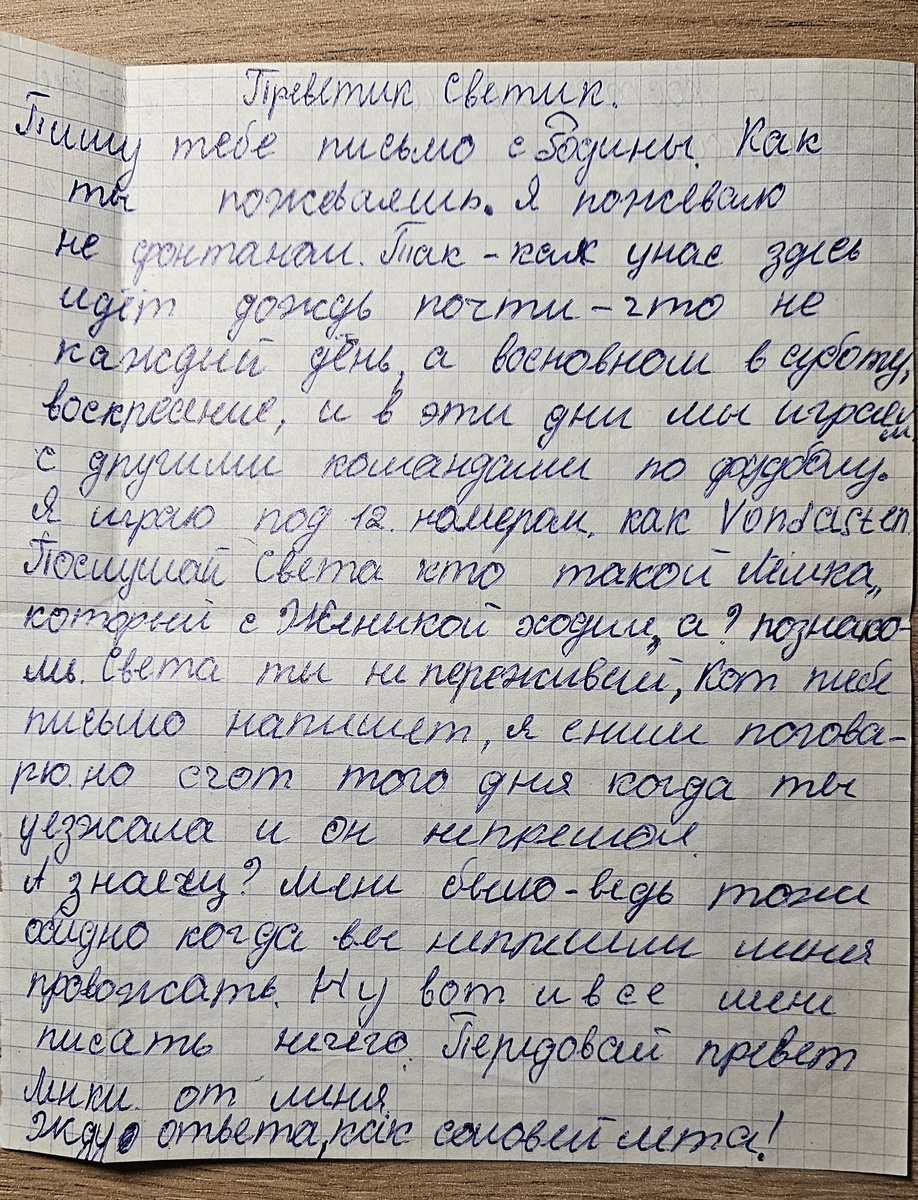 Преветик Светик.
Пишу тебе письмо с Родины. Как
ты пожеваяшь. Я пожеваю
не фонтаном. Так-как унас здесь
идёт дождь почти-что не
каждый день, а восновном в суботу,
воскресение, и в эти дни мы играем
с другими командами по фудболу.
Я играю под 12. номером. как Vondasten.
Послушай Света кто такой Лёшка,,
который с Женикой ходил,, а? познако-
мь. Света ты не переживай, Кот тебе
письмо напишет, я сним погова-
рю. но счот того дня когда ты
уезжала и он непрешол.
А знаеш? Мене было-ведь тоже
обидно когда вы непришли меня
провожать. Ну вот и все мене
писать нечего. Передовай превет
Ленки от меня.
Жду ответа, как соловей лета!